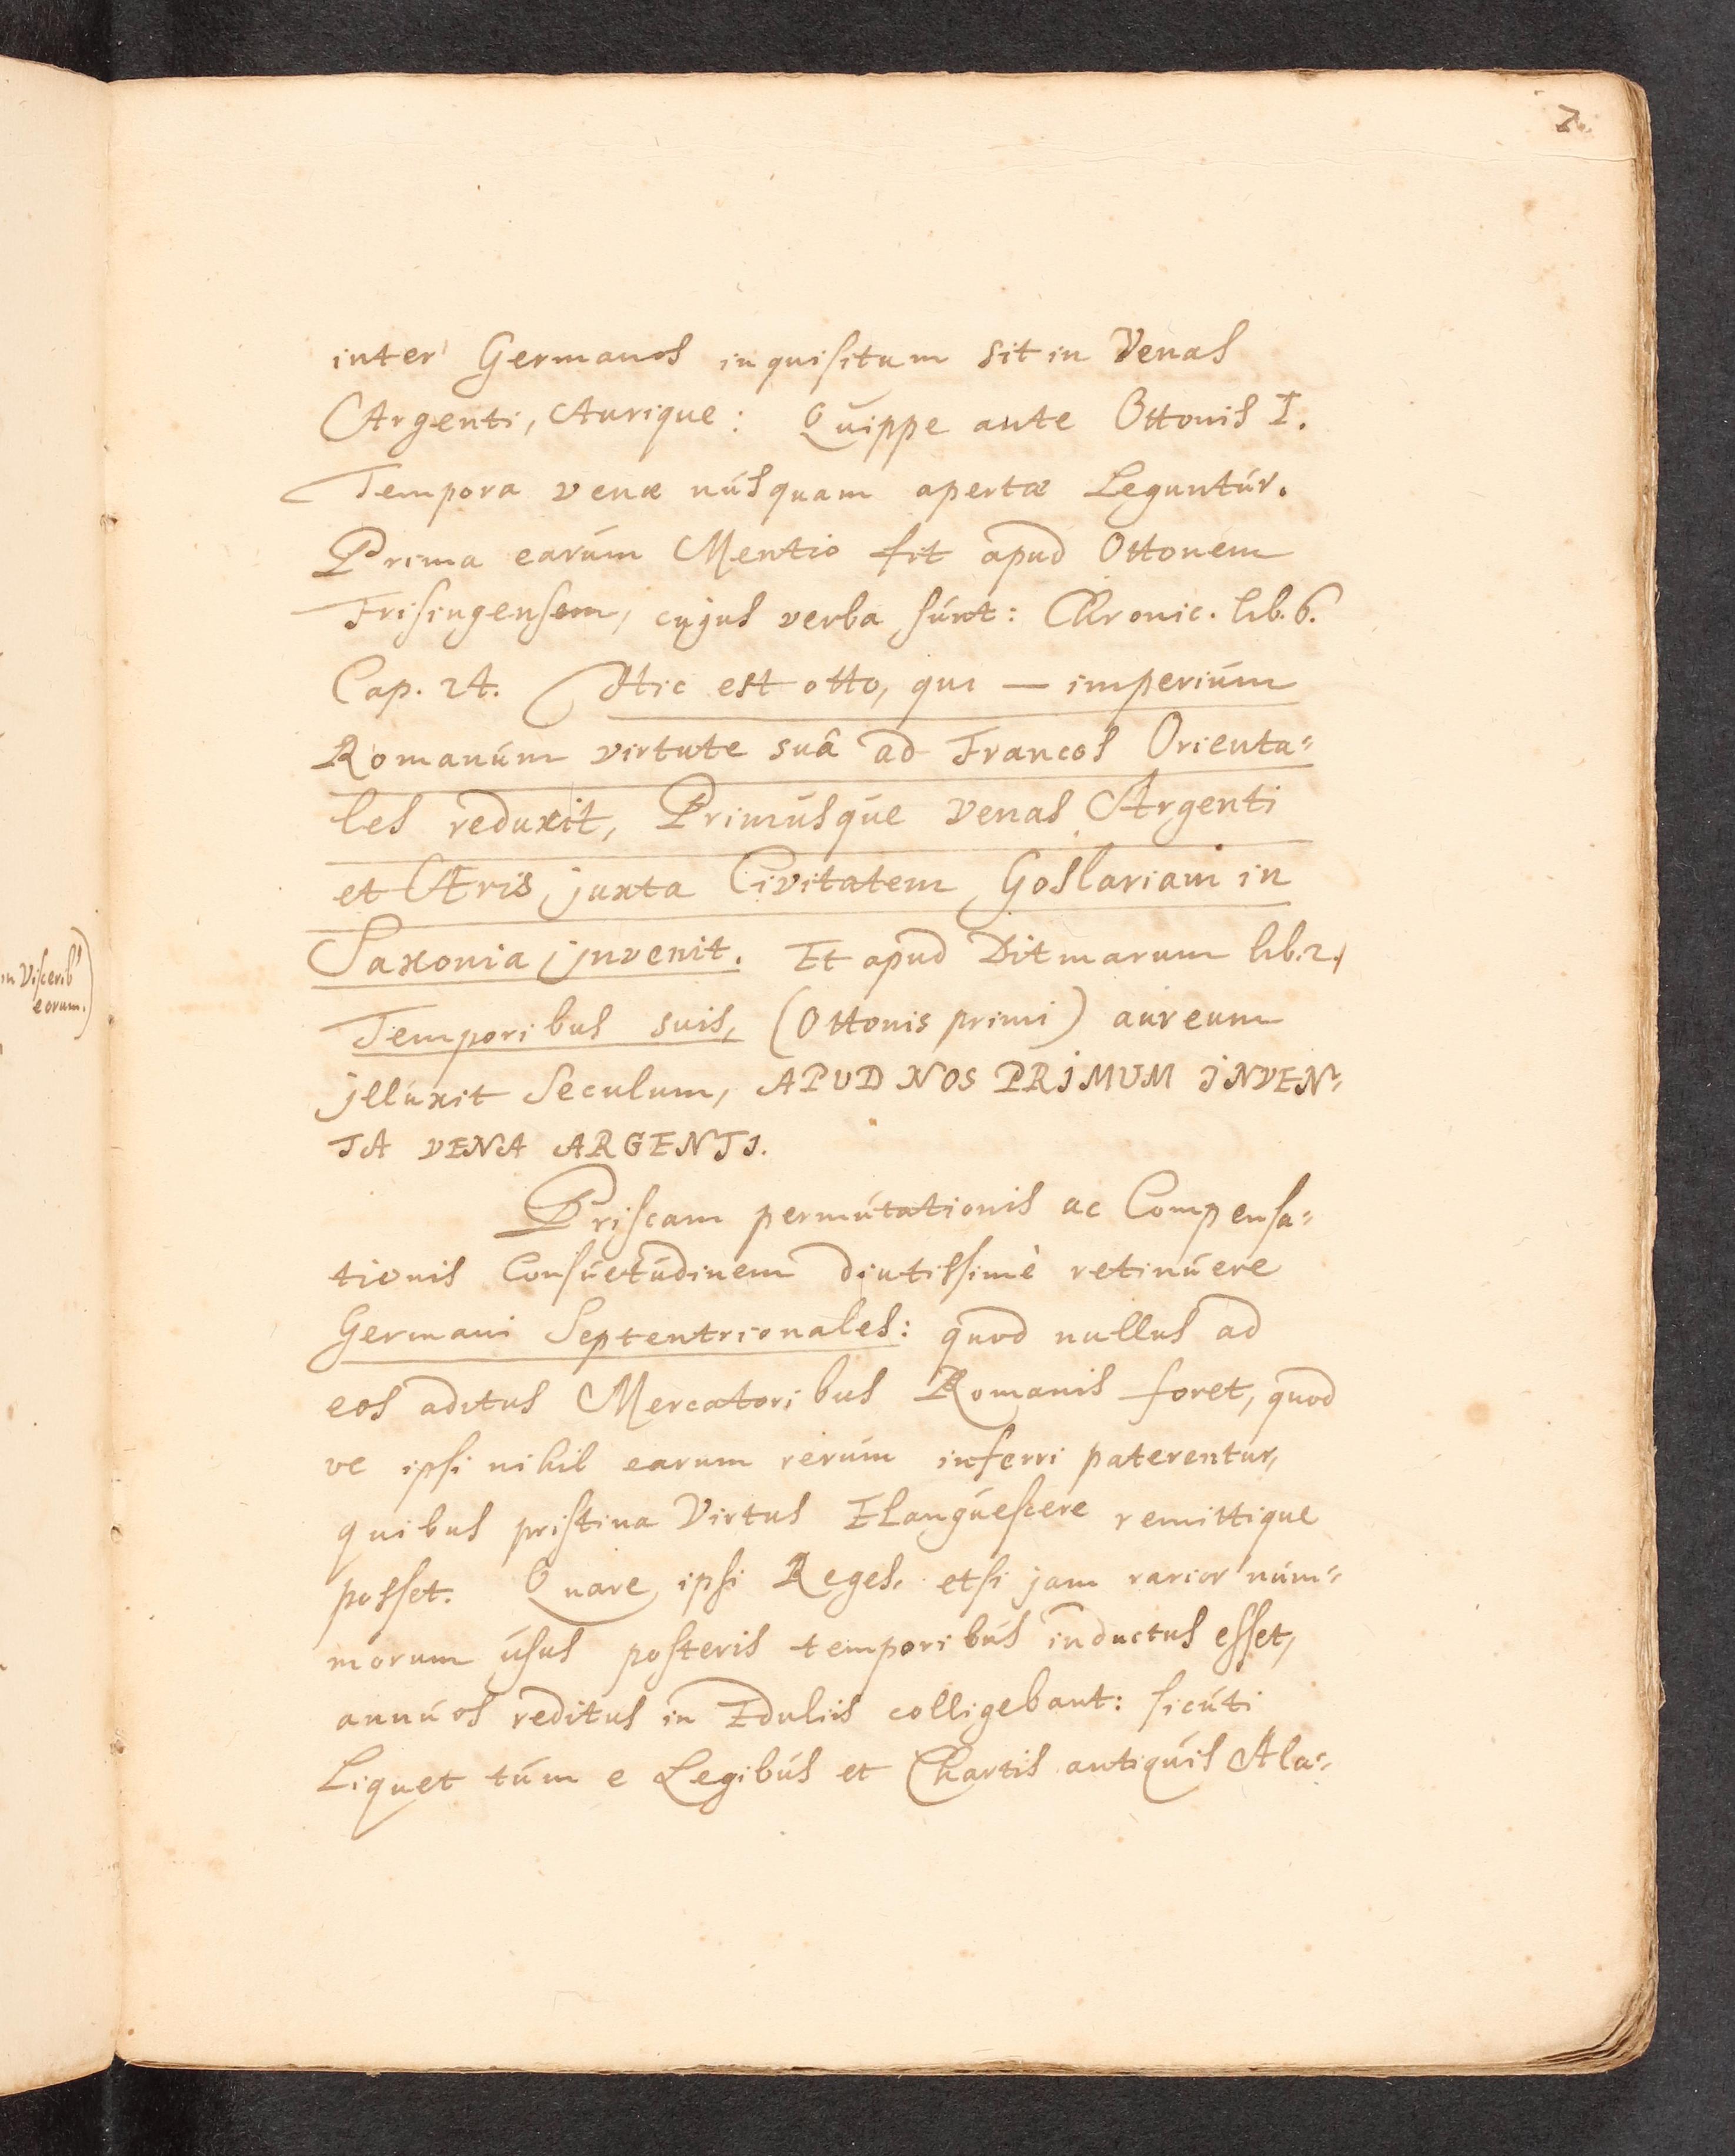 7.
inter Germanos inquisitum sit in Venas
Argenti, Aurique: Quippe ante Ottonis I.
Tempora venæ núsquam apertæ Leguntúr.
Prima earúm Mentio fit apud Ottonem
Frisingensem, cujus verba súnt: Chronic. lib. 6.
Cap. 24. Hic est otto, qui — imperiúm
Romanúm virtute suâ ad Francos Orienta=
les reduxit, Primúsqúe venas Argenti
et Æris juxta Civitatem Goslariam in
Saxonia jnvenit. Et apud Ditmarum lib. 2.
Temporibus suis, (Ottonis primi) aureum
jlluxit Seculum, APUD NOS PRIMUM INVEN=
TA VENA ARGENTI.
Priscam permútationis ac Compensa=
tionis Consúetúdinem diutissimè retinúere
Germani Septentrionales: quod nullus ad
eos aditus Mercatoribus Romanis foret, quod
ve ipsi nihil earum rerúm inferri paterentur,
quibus pristina Virtus ELangúescere remittique
posset. Quare ipsi Reges, etsi jam rarior núm=
morum úsus posteris temporibús inductus esset,
annúos reditus in Eduliis colligebant: sicúti
Liquet túm e Legibús et Chartis antiqúis Ala=
in Viscerib'
eorum.)